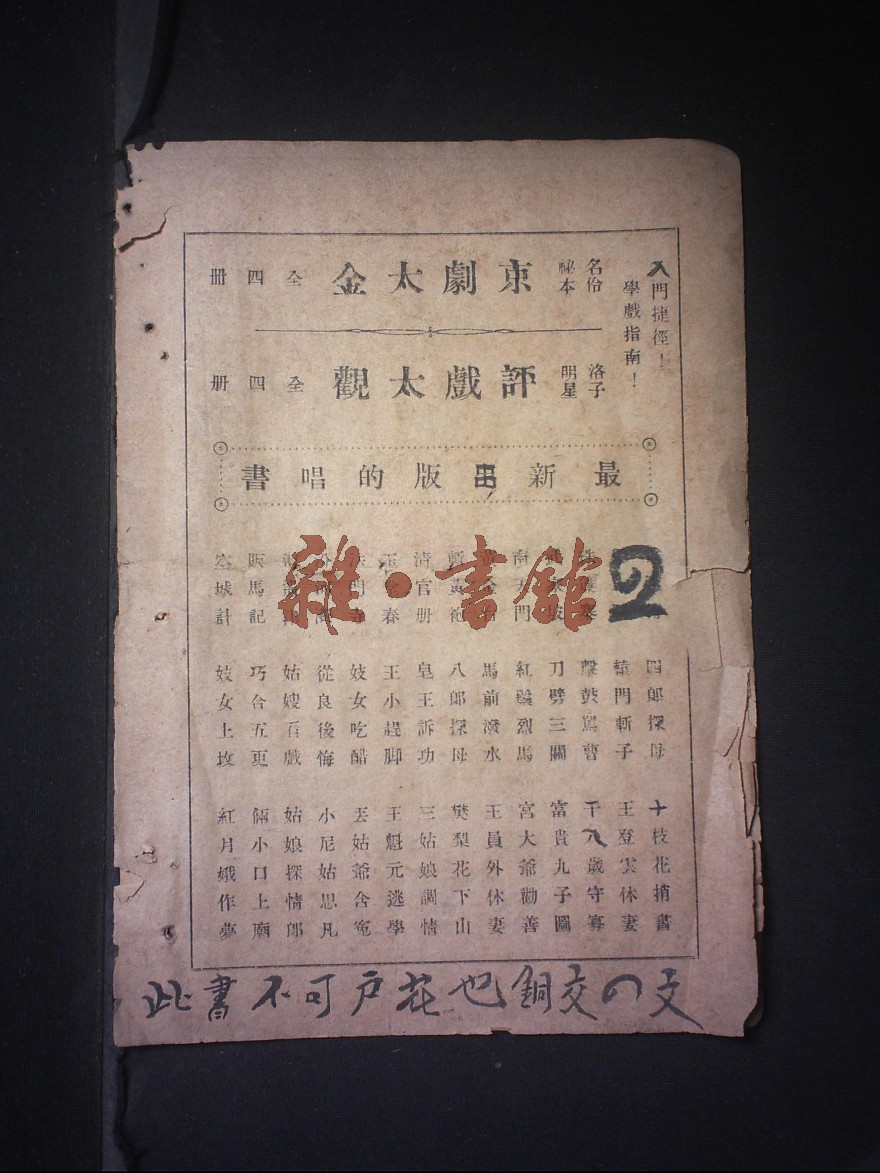 入門捷徑!
學戲指南!
名伶秘本 京劇大金 全四冊
洛子明星 評戲大觀 全四册
最新出版的唱書
南 門
清官册
玉 春
販馬記
空城計
四郎探母
轅門斬子
擊鼓罵曹
刀劈三關
紅鬃烈馬
馬前潑水
八郎探母
皇王訴功
王小趕脚
妓女吃醋
從良後悔
姑嫂看戲
巧合五更
妓女上坟
十枝花捎書
王登雲休妻
千八歲守寡
富貴九子圖
宮大爺勸善
王員外休妻
樊梨花下山
三姑娘調情
王魁元逃學
丟姑爺含寃
小尼姑思凡
姑娘探情郎
倆小口上廟
紅月娥作夢
雜·書館
此書不可户 也銅交の文